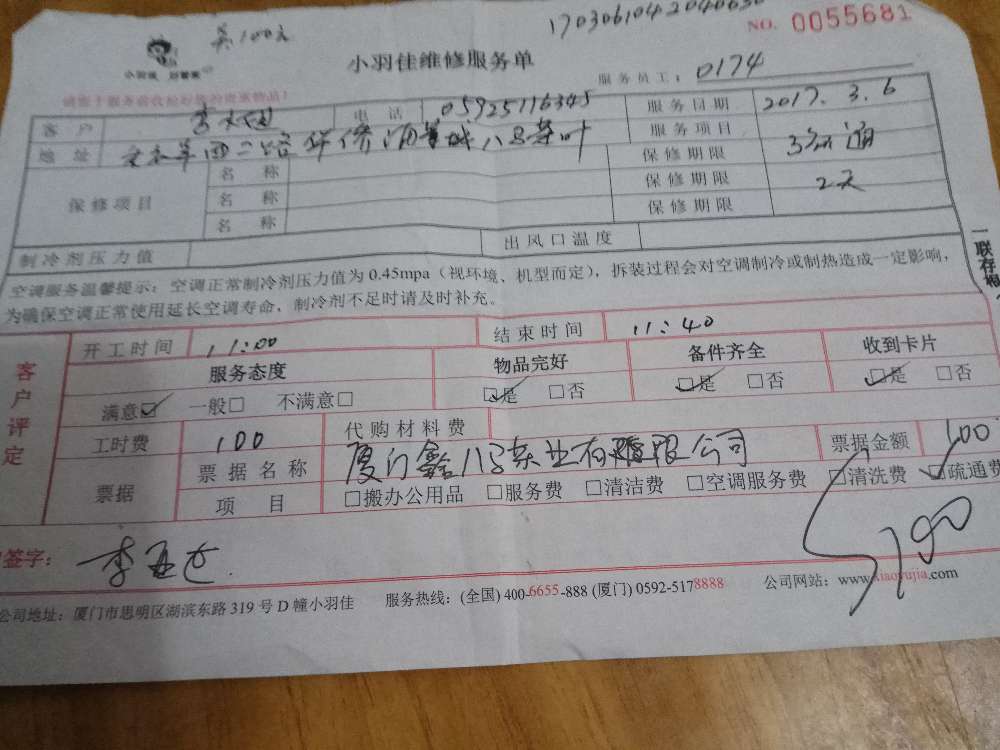 170306104204
NO. 0055681
共100元
小羽佳 好管家
小羽佳维修服务单
服务员工：0174
请您于服务前收拾好您的贵重物品！
客户 电话 05925116345 服务日期 2017.3.6
地址 服务项目
名称 保修期限 疏通
保修项目 名称 保修期限 2天
名称 保修期限
制冷剂压力值 出风口温度
空调服务温馨提示：空调正常制冷剂压力值为 0.45mpa（视环境、机型而定），拆装过程会对空调制冷或制热造成一定影响，
为确保空调正常使用延长空调寿命，制冷剂不足时请及时补充。
一联存根
客户评定
开工时间 11:00 结束时间 11:40
服务态度 物品完好 备件齐全 收到卡片
满意☑ 一般□ 不满意□ ☑是 □否 ☑是 □否 ☑是 □否
工时费 100 代购材料费
票据 票据名称 厦门鑫八马实业有限公司 票据金额 100
项目 □搬办公用品 □服务费 □清洁费 □空调服务费 □清洗费 ☑疏通费
100
签字：李
公司地址：厦门市思明区湖滨东路 319 号 D 幢小羽佳 服务热线：(全国) 400-6655-888 (厦门) 0592-5178888 公司网站：www.xiaoyujia.com